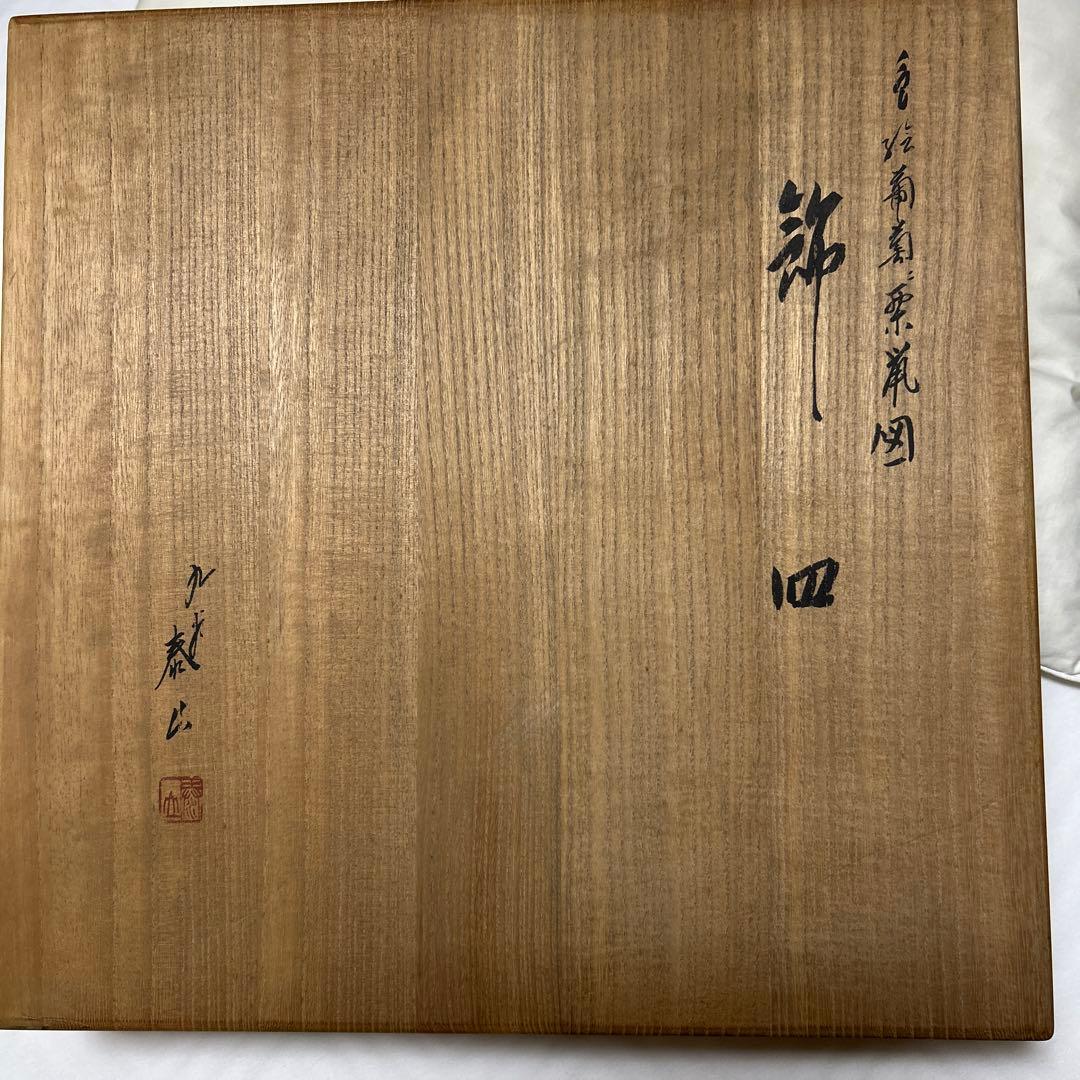 色絵葡萄ニ栗鼠図
飾皿
九谷泰山